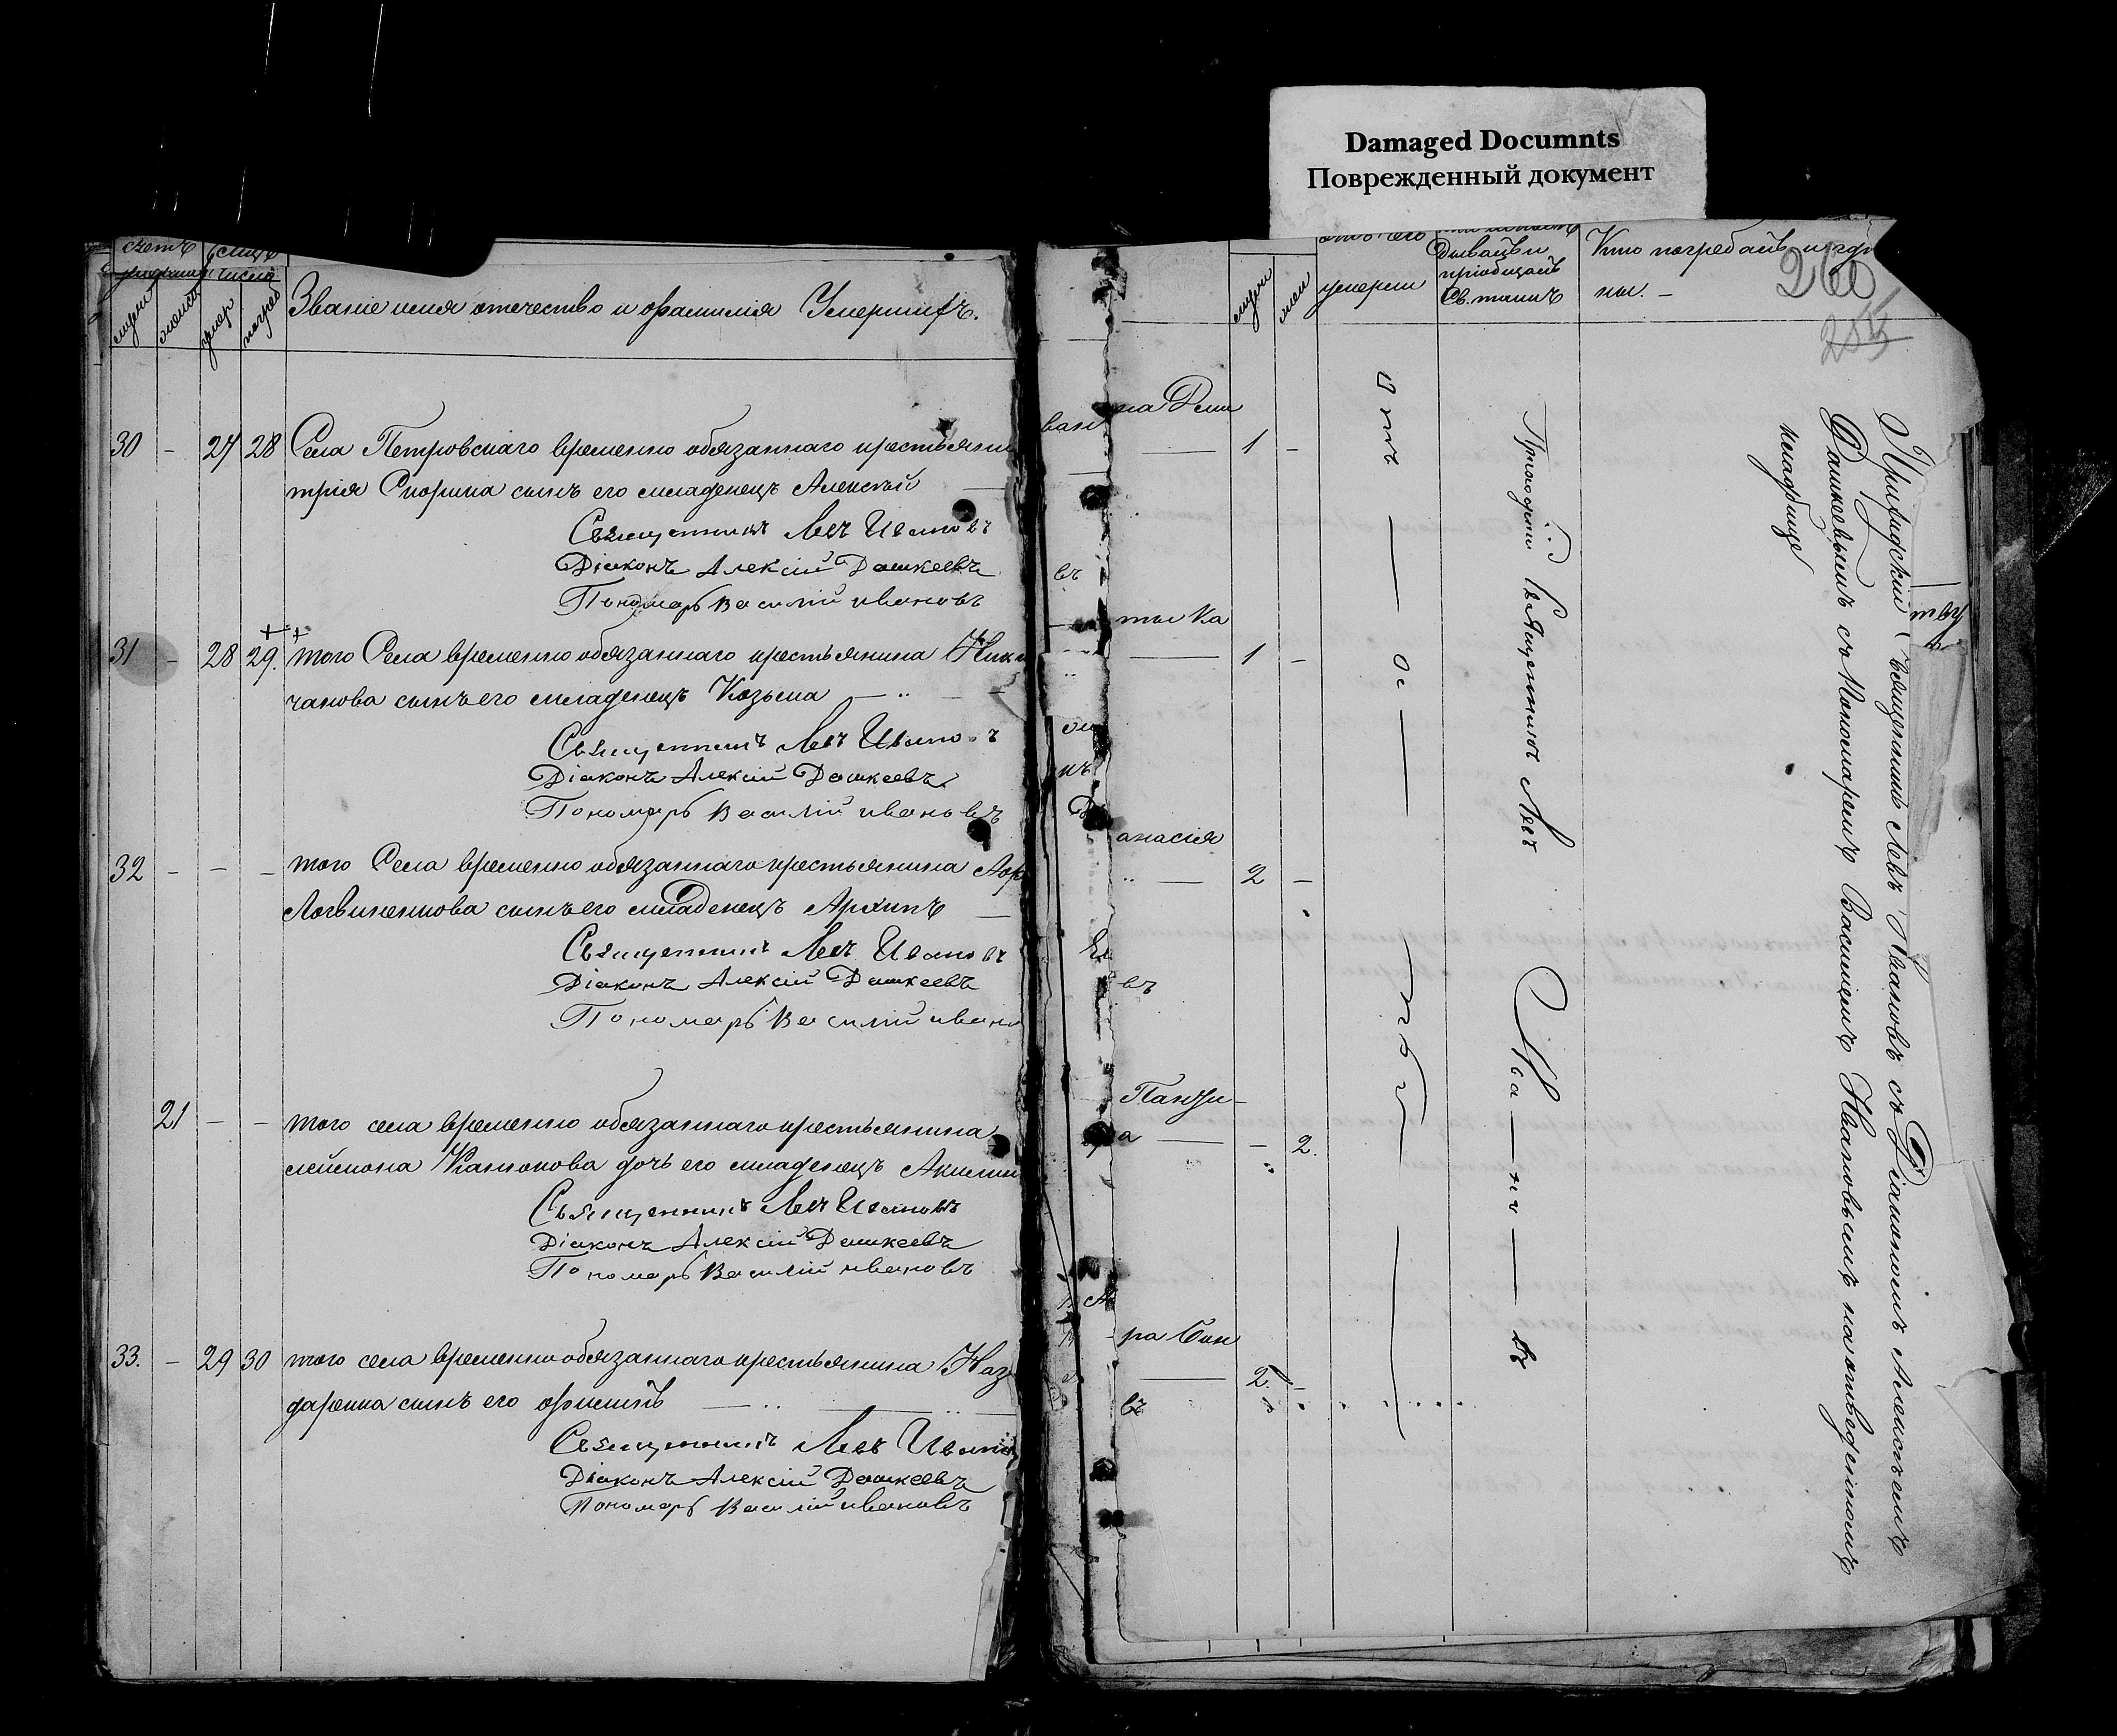 Damaged Documnts
Поврежденный документ
счетъ
числа
мужи
женск
умер
погреб
Званіе имя отечество и фамилія Умершихъ.
30 - 27 28 Села Петровскаго временно обязаннаго крестьяни
трія Скорика сынъ его младенецъ Алексѣй —
Священникъ Левъ Ивановъ
Діаконъ Алексій Дашкеевъ
Пономарь Василій ивановъ
31 - 28 29. того Села временно обязаннаго крестьянина Ники
чанова сынъ его младенецъ Козьма — .. —
Священникъ Левъ Ивановъ
Діаконъ Алексій Дашкеевъ
Пономарь Василій ивановъ
32 - - - того Села временно обязаннаго крестьянина Аф
Логвиненкова сынъ его младенецъ Архипъ —
Священникъ Левъ Ивановъ
Діаконъ Алексій Дашкеевъ
Пономарь Василій ивано
21 - - того села временно обязаннаго крестьянина
леймона Канюкова дочь его младенецъ Акили
Священникъ Левъ Ивановъ
Діаконъ Алексій Дашкеевъ
Пономарь Василій ивановъ
33. - 29 30 того села временно обязаннаго крестьянина Наза
даренка сынъ его филипъ — .. — .. —
Священникъ Левъ Ивано
Діаконъ Алексій Дашкеевъ
Пономарь Василій ивановъ
мужи
жен
умерли
пріобщалъ
Св. таинъ
Кто погребалъ и гдѣ
ны. -
260
255
на Дми
— 1 -
ты Ка
— 1 -
анасія
.. — 2 -
въ
Пантѣ-
а — - 2.
ра Бон
— 2. -
въ
отъ — ос — пы —
Приходскій Священникъ Левъ
Ива — но — въ
Приходскій Священникъ Левъ Ивановъ съ Діакономъ Алексѣемъ
Дашкеевымъ съ Пономаремъ Василіемъ Ивановымъ на отведенномъ
кладбищѣ